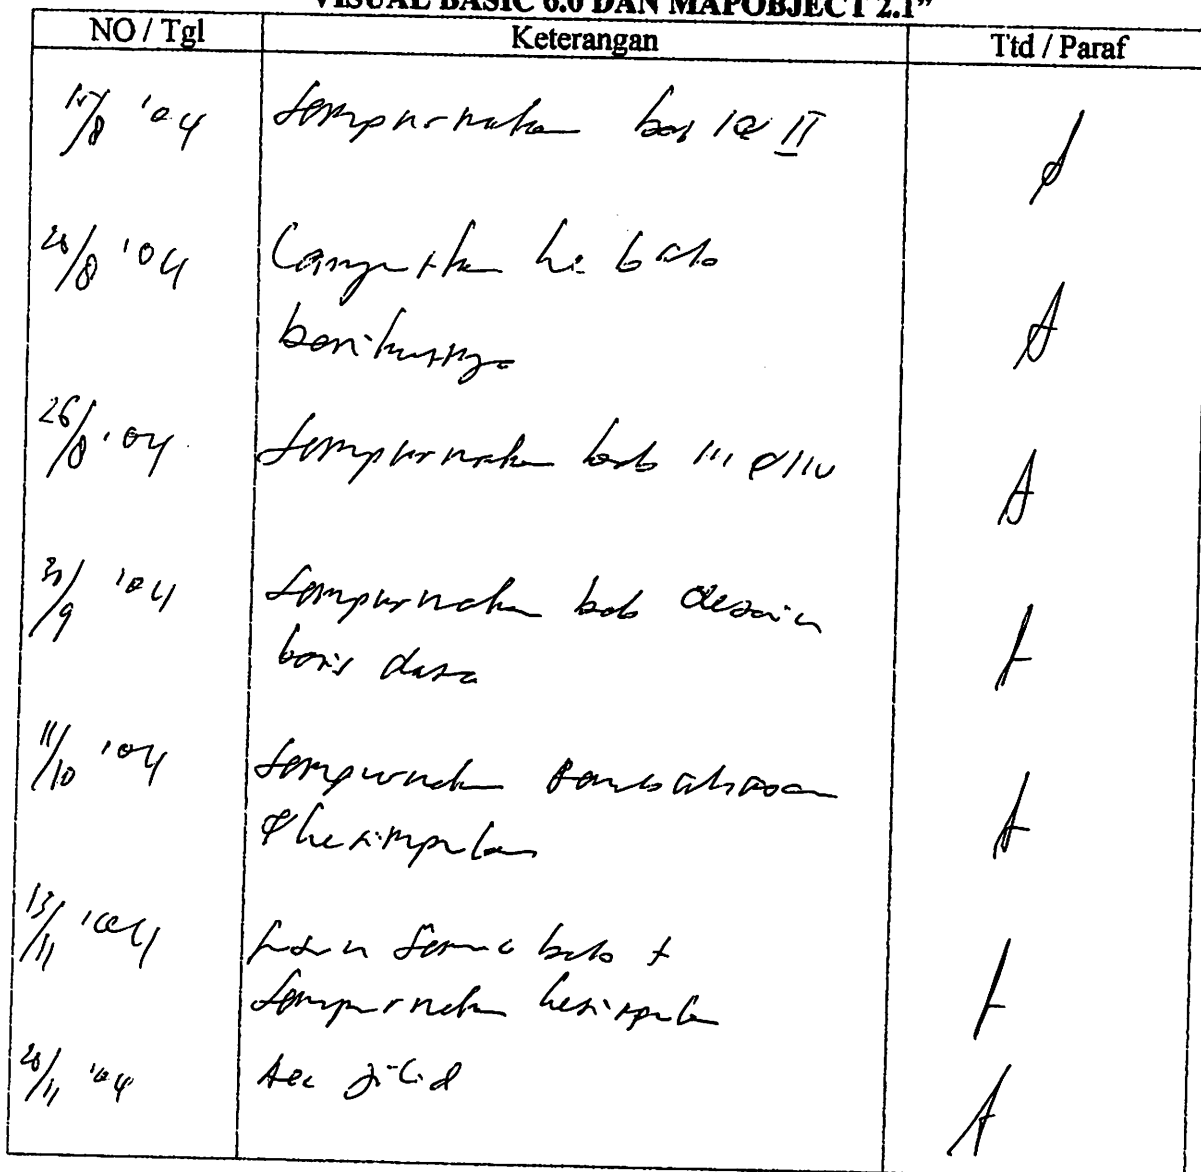 VISUAL BASIC 6.0 DAN MAPOBJECT 2.1”
NO / Tgl Keterangan Ttd / Paraf
8 '04 Sempurnakan bab I & II
20/8 '04 Lanjutkan ke bab
berikutnya
26/8 '04 Sempurnakan bab III & IV
/9 '04 Sempurnakan bab desain
basis data
11/10 '04 Sempurnakan Pembahasan
& kesimpulan
13/11 '04 Susun semua bab +
Sempurnakan kesimpulan
20/11 '04 Acc jilid